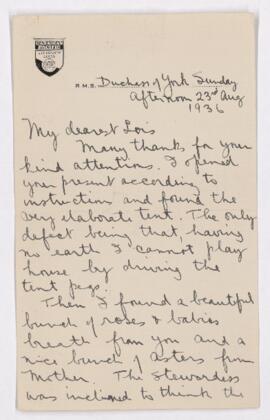 Canadian
Pacific
R.M.S. Duchess of York Sunday
Afternoon 23rd Aug
1936
My dearest Lois
Many thanks for your
kind attentions. I opened
your present according to
instruction and found the
very elaborate tent. The only
defect being that, having
no earth I cannot play
house by driving the
tent pegs.
Then I found a beautiful
bunch of roses & babies
breath from you and a
nice bunch of asters from
Mother. The Stewardess
was inclined to think the